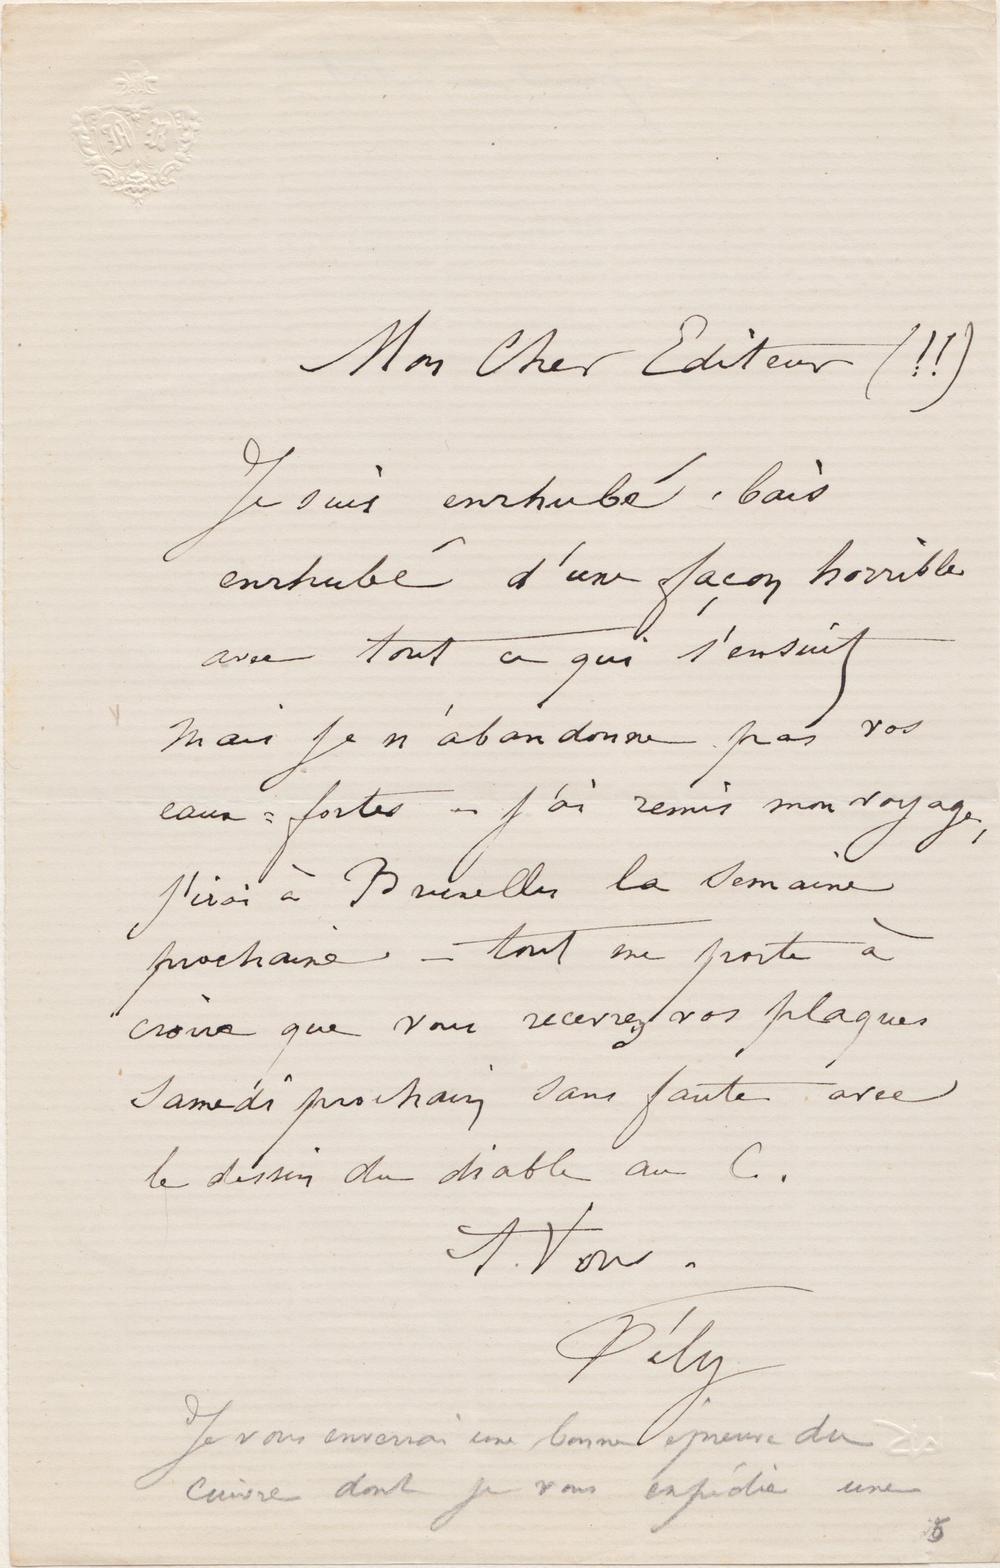 Mon Cher Editeur (!!)
Je suis enrhubé, bais
enrhubé d'une façon horrible
avec tout ce qui s'ensuit
Mais je n'abandonne pas vos
eaux=fortes – j'ai remis mon voyage,
j'irai à Bruxelles la semaine
prochaine. – tout me porte à
croire que vous recevrez vos plaques
Samedi prochain sans faute avec
le dessin du diable au C.
A Vous.
Fély
Je vous enverrai une bonne épreuve du
cuivre dont je vous expédie une